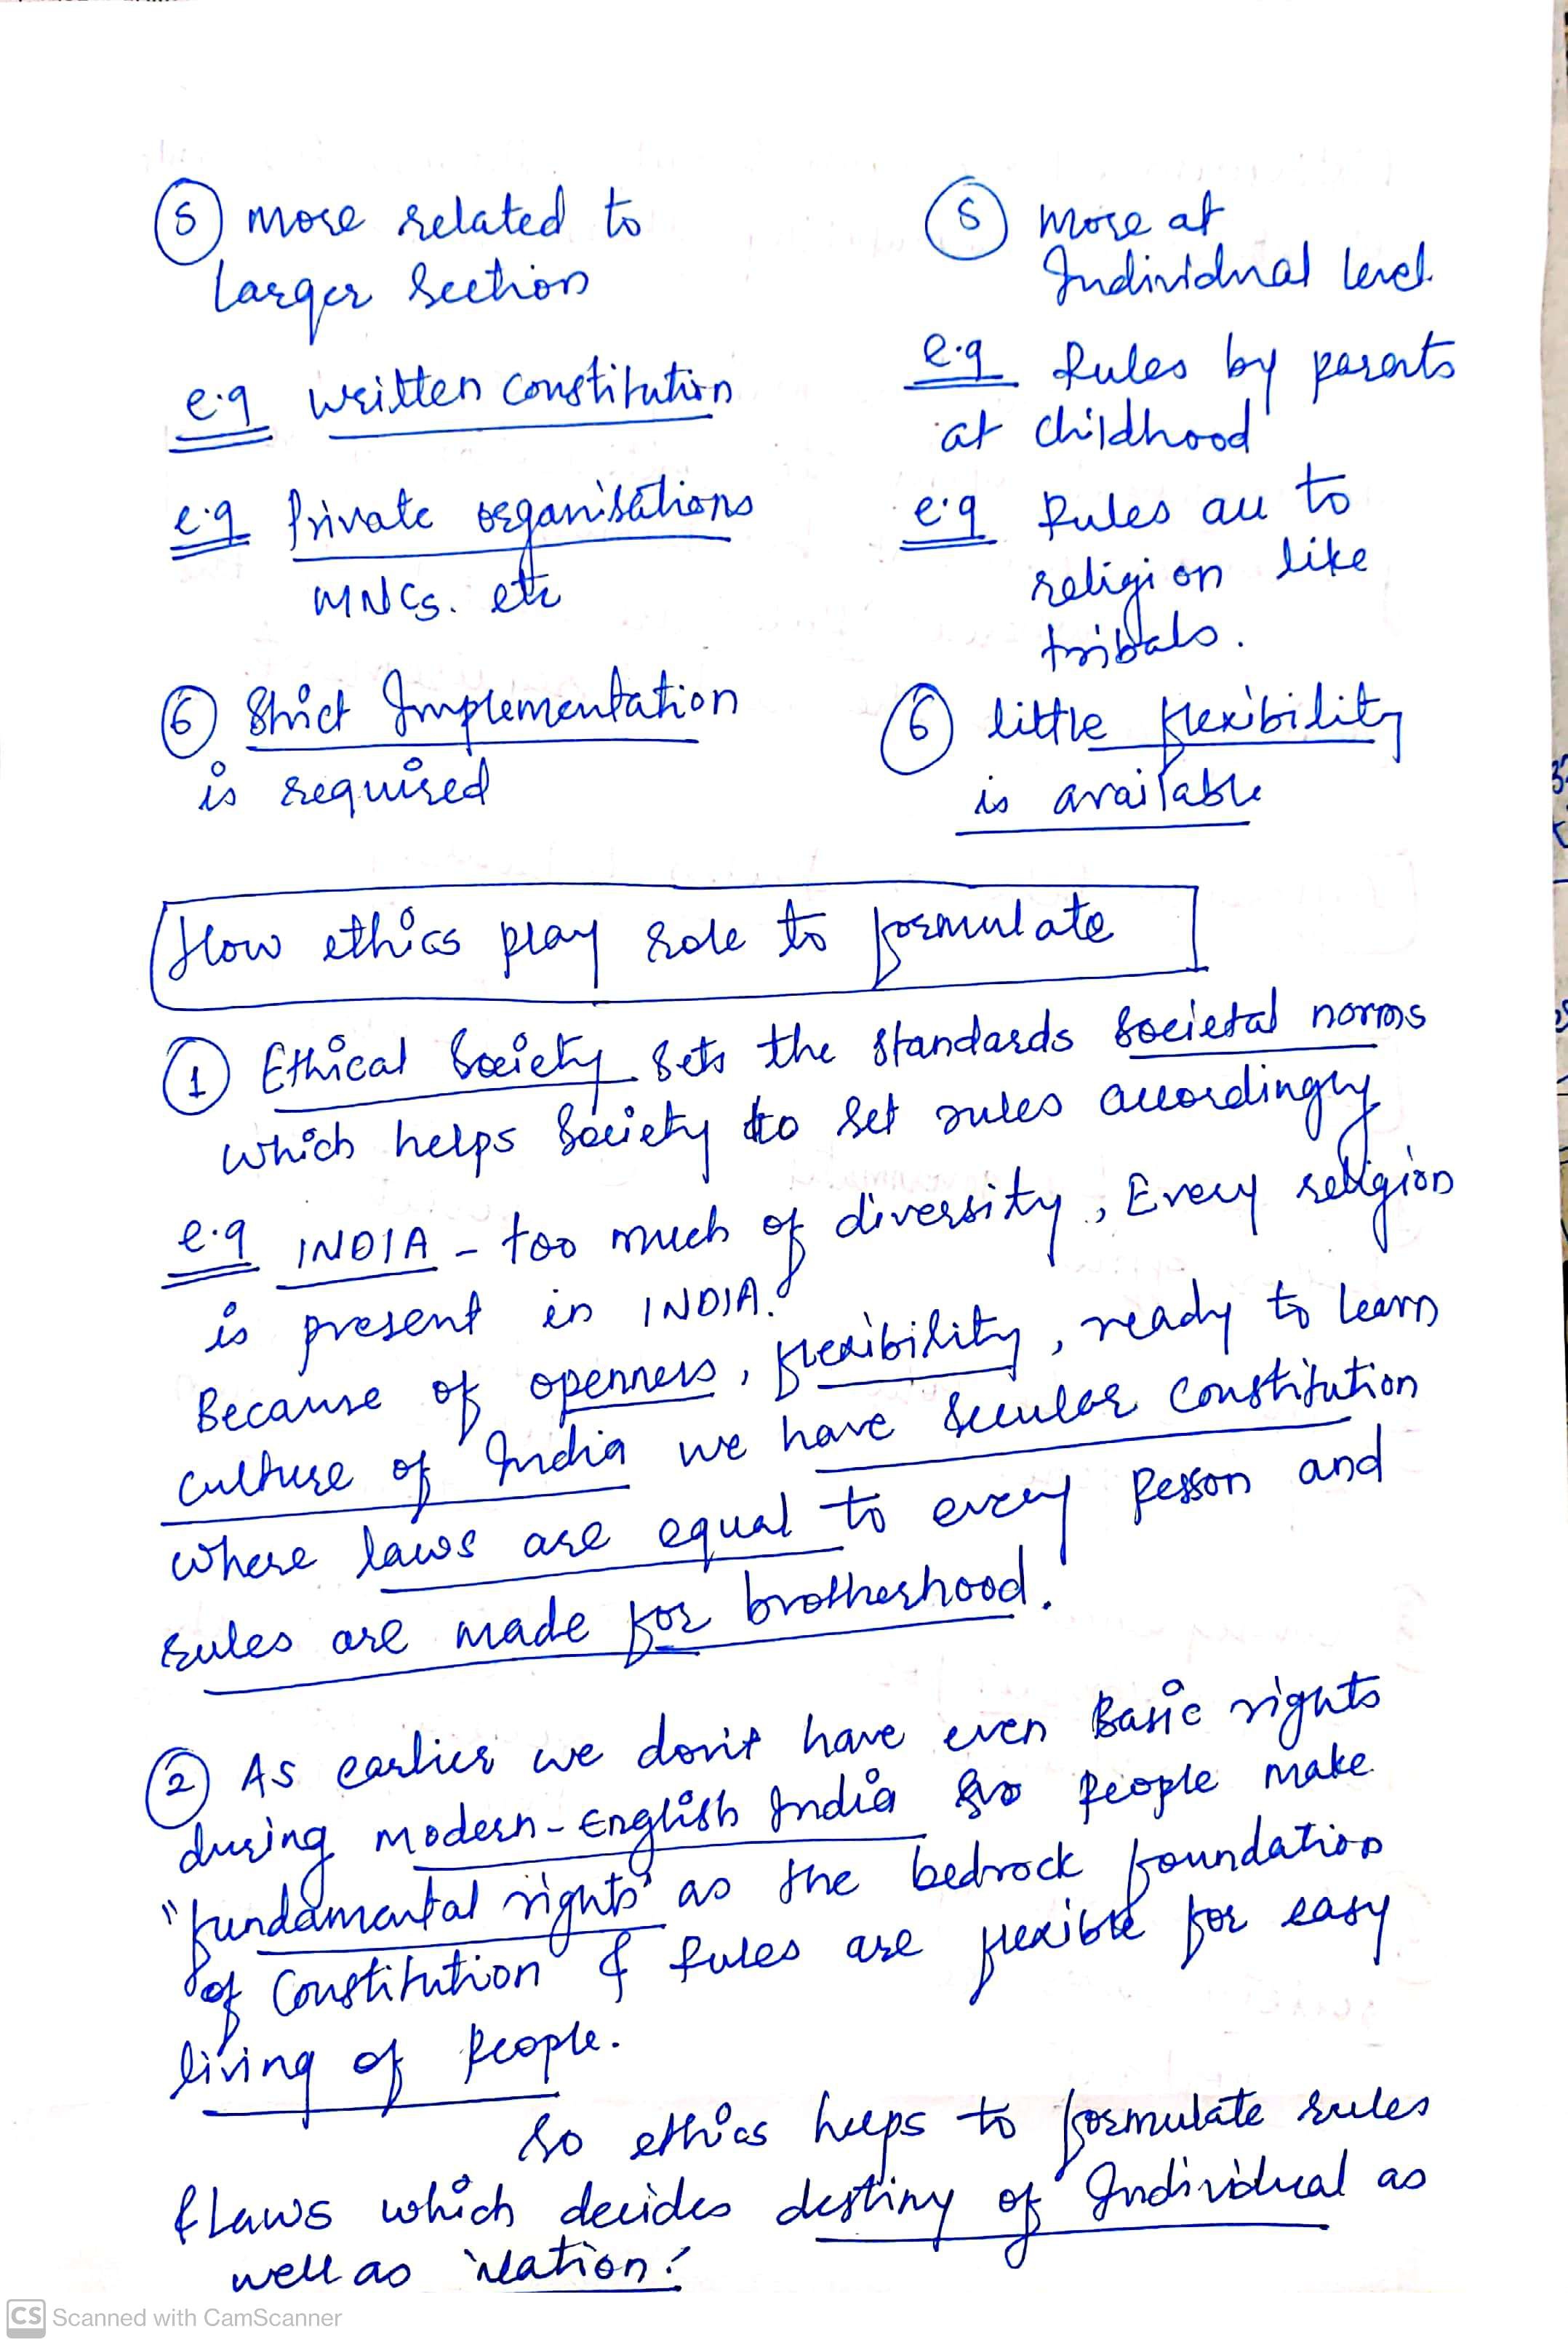 ⑤ more related to
larger section
e.g written constitution
e.g private organisations
MNCs. etc
⑥ Strict Implementation
is required
⑤ more at
Individual level
e.g Rules by parents
at childhood
e.g Rules acc to
religion like
tribals.
⑥ little flexibility
is available
How ethics play role to formulate
① Ethical society sets the standards societal norms
which helps society to set rules accordingly
e.g INDIA - too much of diversity, Every religion
is present in INDIA.
Because of openness, flexibility, ready to learn
culture of India we have secular constitution
where laws are equal to every person and
rules are made for brotherhood.
② As earlier we don't have even Basic rights
during modern-English India so people make
"fundamental rights" as the bedrock foundation
of Constitution & Rules are flexible for easy
living of people.
So ethics helps to formulate rules
& Laws which decides destiny of Individual as
well as nation.
CS Scanned with CamScanner